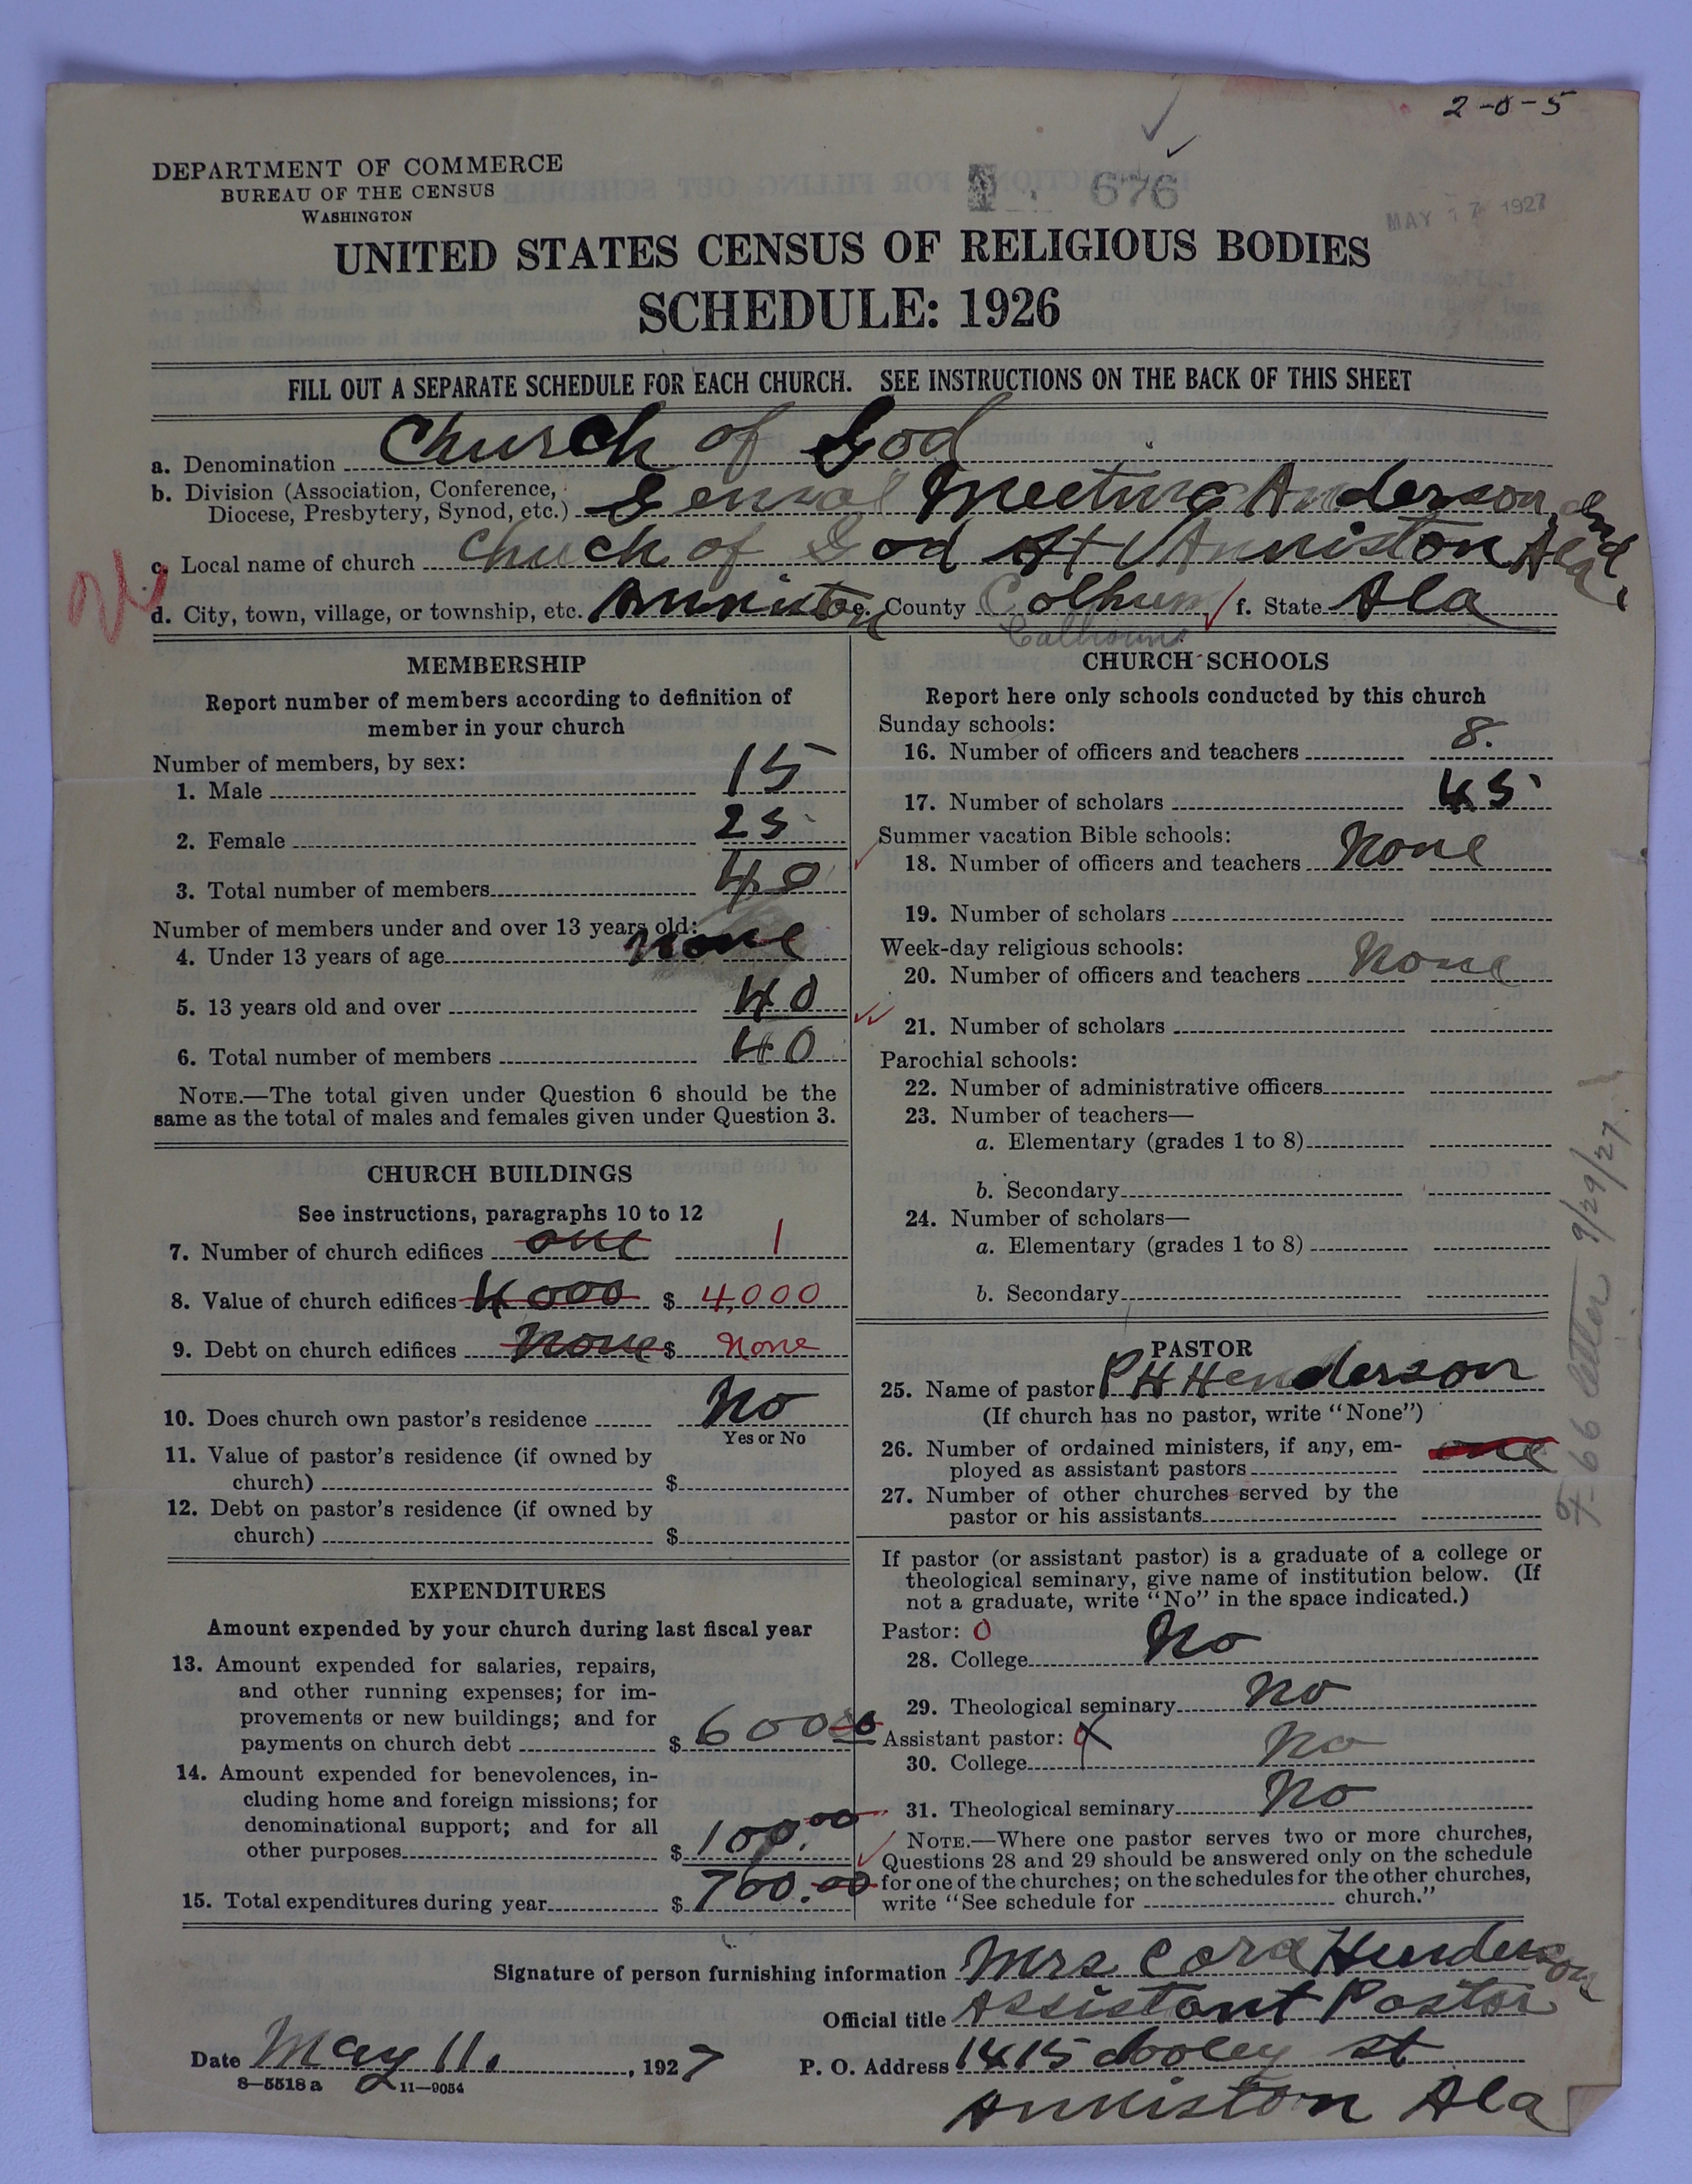 2-0-5
676
MAY 17 1927
DEPARTMENT OF COMMERCE
BUREAU OF THE CENSUS
WASHINGTON
UNITED STATES CENSUS OF RELIGIOUS BODIES
SCHEDULE: 1926
FILL OUT A SEPARATE SCHEDULE FOR EACH CHURCH. SEE INSTRUCTIONS ON THE BACK OF THIS SHEET
a. Denomination Church of God
b. Division (Association, Conference,
Diocese, Presbytery, Synod, etc.) General Meeting Anderson Ind
c. Local name of church Church of God At Anniston Ala,
d. City, town, village, or township, etc. Anniston e. County Colhum f. State Ala
Calhoun
MEMBERSHIP
Report number of members according to definition of
member in your church
Number of members, by sex:
1. Male 15
2. Female 25
3. Total number of members 40
Number of members under and over 13 years old:
4. Under 13 years of age None
5. 13 years old and over 40
6. Total number of members 40
NOTE.—The total given under Question 6 should be the
same as the total of males and females given under Question 3.
CHURCH BUILDINGS
See instructions, paragraphs 10 to 12
7. Number of church edifices one 1
8. Value of church edifices 4000 $ 4,000
9. Debt on church edifices None $ None
10. Does church own pastor's residence No
Yes or No
11. Value of pastor's residence (if owned by
church) $
12. Debt on pastor's residence (if owned by
church) $
EXPENDITURES
Amount expended by your church during last fiscal year
13. Amount expended for salaries, repairs,
and other running expenses; for im-
provements or new buildings; and for
payments on church debt $ 600 00
14. Amount expended for benevolences, in-
cluding home and foreign missions; for
denominational support; and for all
other purposes $ 100.00
15. Total expenditures during year $ 700.00
CHURCH SCHOOLS
Report here only schools conducted by this church
Sunday schools:
16. Number of officers and teachers 8.
17. Number of scholars 45
Summer vacation Bible schools:
18. Number of officers and teachers None
19. Number of scholars
Week-day religious schools:
20. Number of officers and teachers None
21. Number of scholars
Parochial schools:
22. Number of administrative officers
23. Number of teachers—
a. Elementary (grades 1 to 8)
b. Secondary
24. Number of scholars—
a. Elementary (grades 1 to 8)
b. Secondary
PASTOR
25. Name of pastor P H Henderson
(If church has no pastor, write "None")
26. Number of ordained ministers, if any, em-
ployed as assistant pastors one
27. Number of other churches served by the
pastor or his assistants
If pastor (or assistant pastor) is a graduate of a college or
theological seminary, give name of institution below. (If
not a graduate, write "No" in the space indicated.)
Pastor: 0
28. College No
29. Theological seminary No
Assistant pastor:
30. College No
31. Theological seminary No
NOTE.—Where one pastor serves two or more churches,
Questions 28 and 29 should be answered only on the schedule
for one of the churches; on the schedules for the other churches,
write "See schedule for church."
66 letter 9/29/27
Signature of person furnishing information Mrs Cora Henderson
Official title Assistant Pastor
Date May 11. , 1927 P. O. Address 1415 cooley st
8—5518 a 11—9054
Anniston Ala